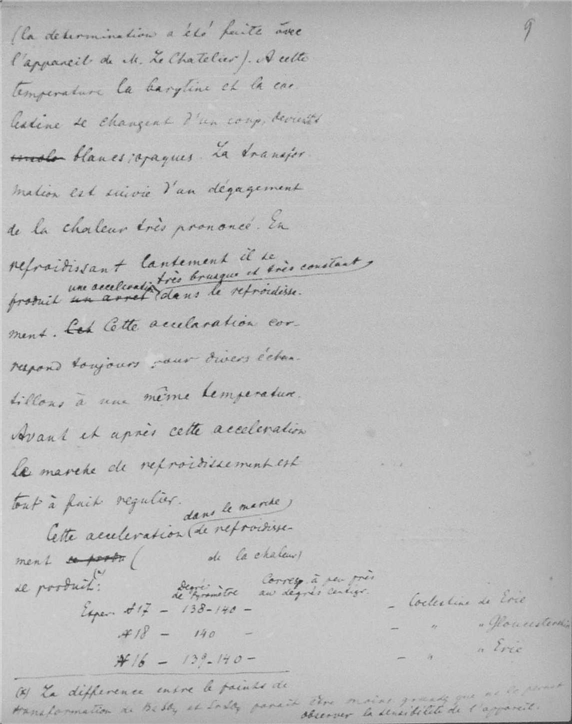 9
(la determination a été faite avec
l'appareil de M. Le Chatelier). A cette
temperature la barytine et la coe
lestine se changent d'un coup, devients
blancs, opaques. La transfor
mation est suivie d'un dégagement
de la chaleur très prononcé. En
refroidissant lantement il se
une acceleration très brusque et très constant
produit un arret (dans le refroidisse-
ment. Cet Cette accelaration cor-
respond toujours pour divers échan
tillons à une même temperature.
Avant et après cette acceleration
la marche de refroidissement est
tout à fait regulier.
dans le marche
Cette acceleration (de refroidisse-
ment ( de la chaleur)
se produit (*):
Degré de Pyromètre
Corresp. à peu près au dégrés centigr.
Exper. #17 – 138-140 – – Coelestine de Erie
#18 – 140 – – " " Gloucester
#16 – 139-140 – – " " Erie
(*) La difference entre le points de
transformation de BaSO4 et SrSO4 parait être moins grande que ne le permet
observer la sensibilité de l'appareil.